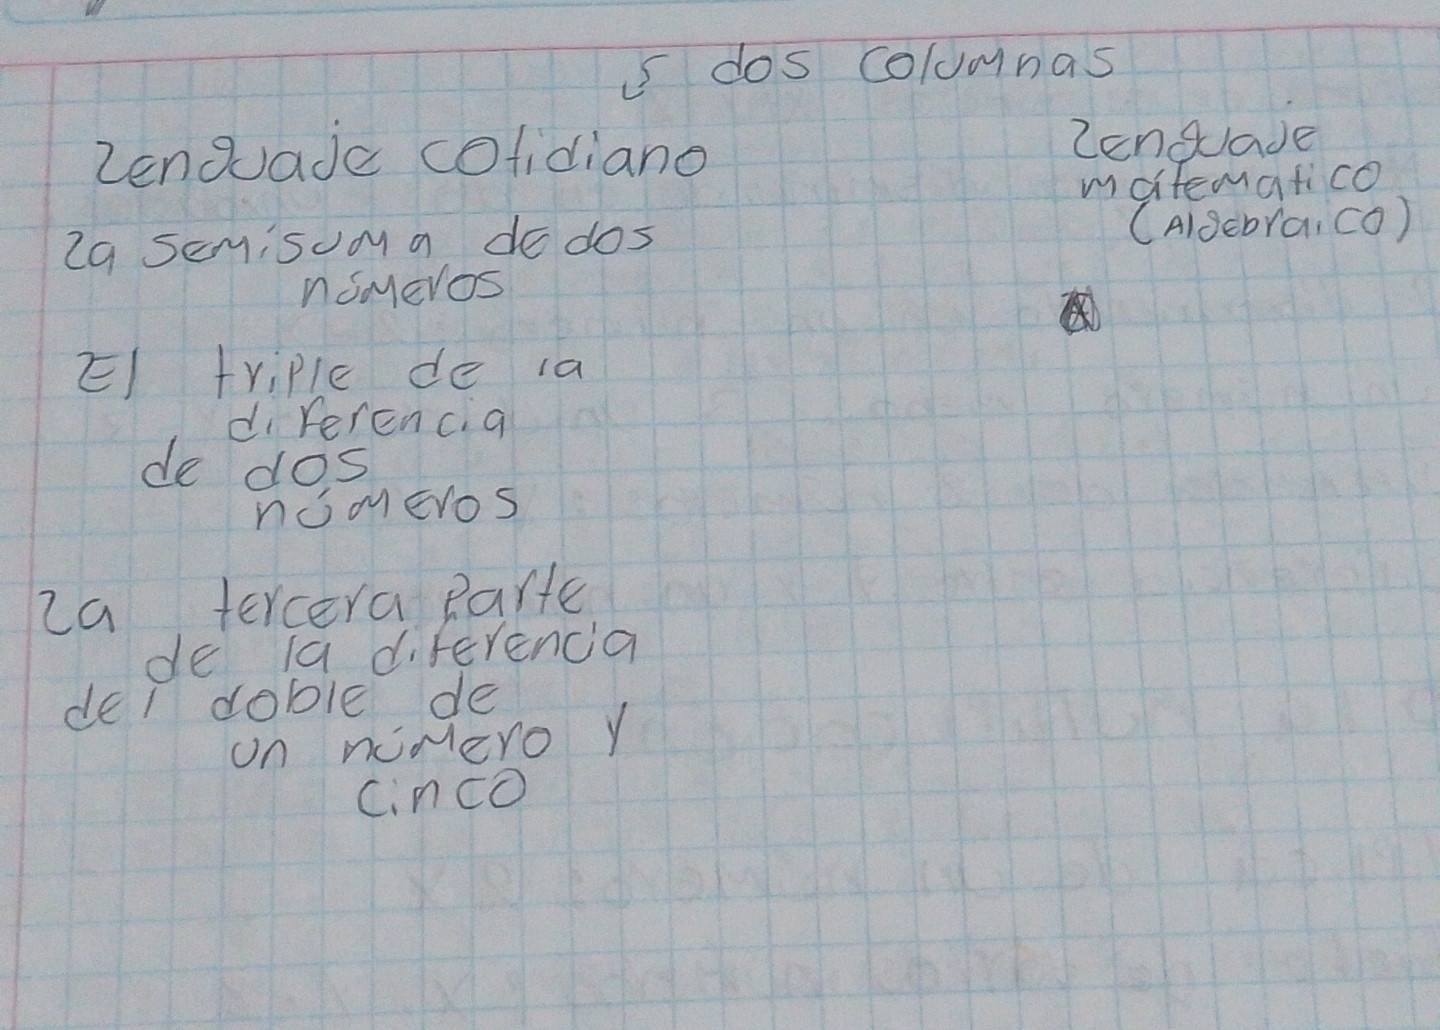 dos columnas
Lenguaje cotidiano
Lenguaje
matematico
(Algebraico)
La semisuma de dos
números
El triple de la
diferencia
de dos
números
La tercera parte
de la diferencia
del doble de
un número y
cinco